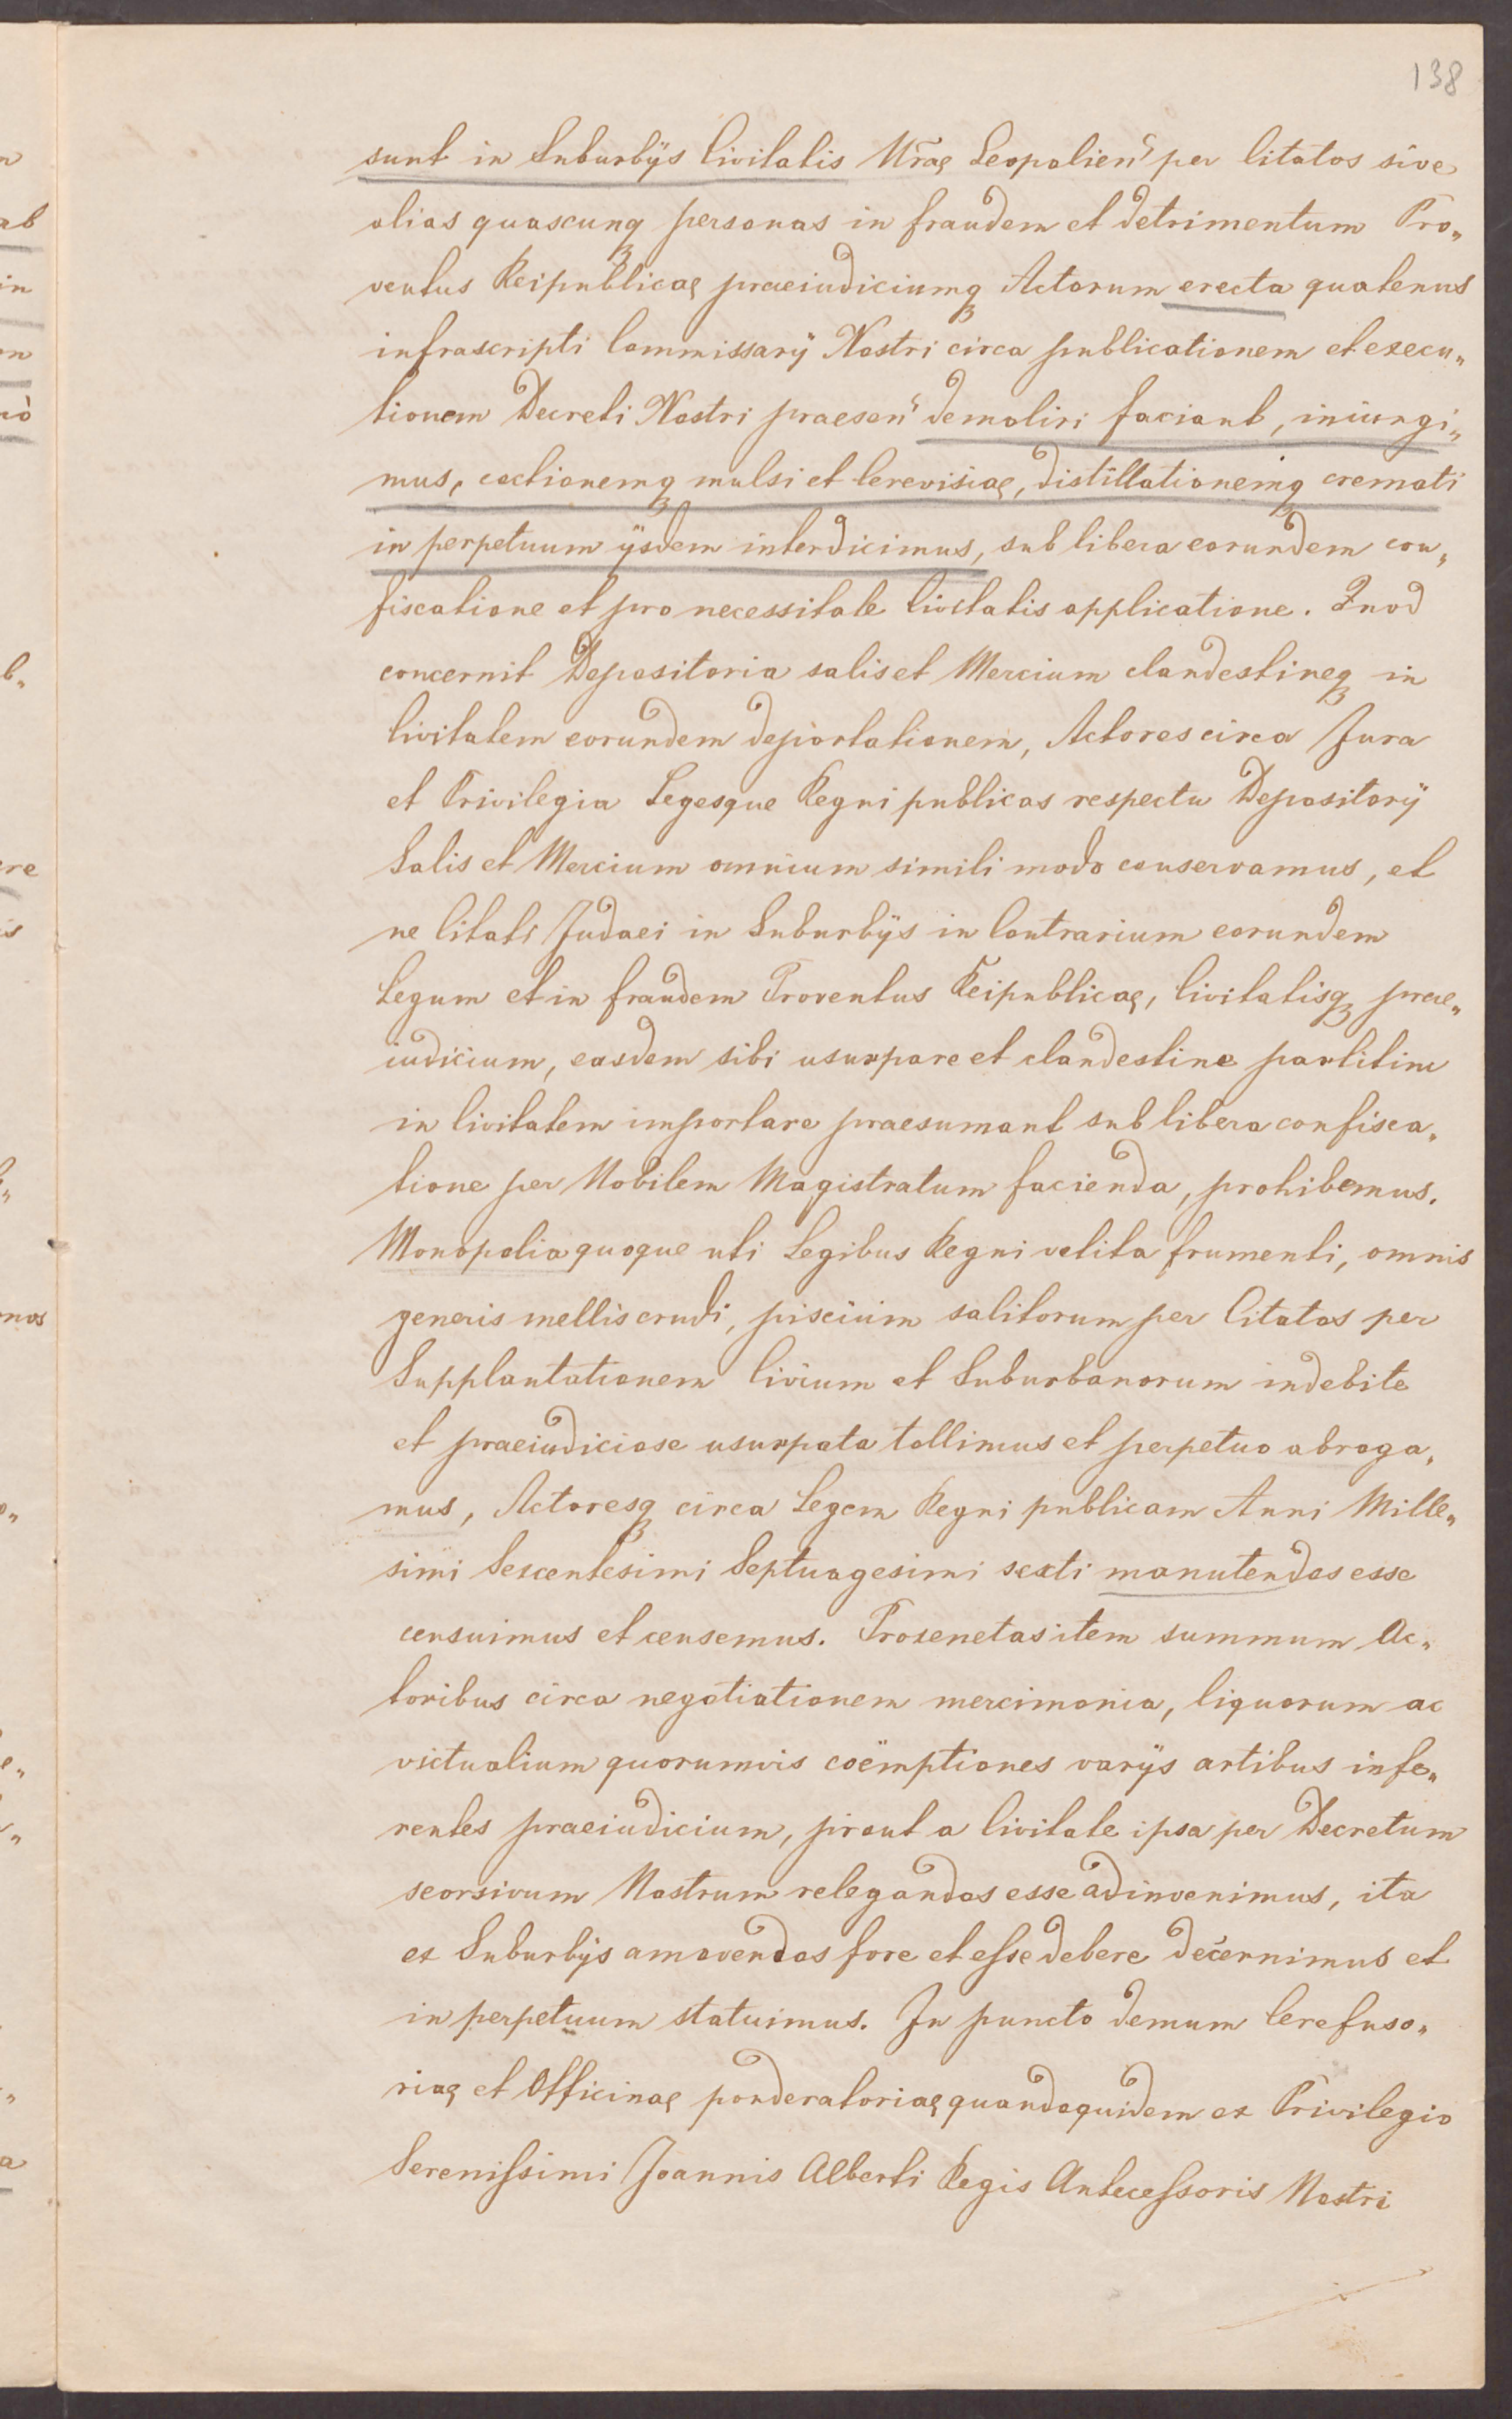 138
sunt in Suburbijs Civitatis Nrae Leopolien' per Citatos sive
alias quascunq personas in fraudem et detrimentum Pro„
ventus Reipublicae praeiudiciumq Actorum erecta quatenus
infrascripti Commissarij Nostri circa publicationem et execu„
tionem Decreti Nostri praesen' demoliri faciant, iniungi„
mus, coctionemq mulsi et Cerevisiae, distillationemq cremati
in perpetuum ijsdem interdicimus, sub libera eorundem con„
fiscatione et pro necessitate Civitatis applicatione. Quod
concernit Depositoria salis et Mercium clandestineq in
Civitatem eorundem deportationem, Actores circa Jura
et Privilegia Legesque Regni publicas respectu Depositorij
Salis et Mercium omnium simili modo conservamus, et
ne Citati Judaei in Suburbijs in Contrarium eorundem
Legum et in fraudem Proventus Reipublicae, Civitatisq prae„
iudicium, easdem sibi usurpare et clandestine partitim
in Civitatem importare praesumant sub libera confisca„
tione per Nobilem Magistratum facienda, prohibemus.
Monopolia quoque uti Legibus Regni vetita frumenti, omnis
generis mellis crudi, piscium salitorum per Citatos per
Supplantationem Civium et Suburbanorum indebite
et praeiudiciose usurpata tollimus et perpetuo abroga„
mus, Actoresq circa Legem Regni publicam Anni Mille„
simi Sexcentesimi Septuagesimi sexti manutendos esse
censuimus et censemus. Proxenetas item summum Ac„
toribus circa negotiationem mercimonia, liquorum ac
victualium quorumvis coëmptiones varijs artibus infe„
rentes praeiudicium, prout a Civitate ipsa per Decretum
seorsivum Nostrum relegandos esse adinvenimus, ita
ex Suburbijs amovendos fore et esse debere decernimus et
in perpetuum statuimus. In puncto demum Cerefuso„
riae et Officinae ponderatoriae quandoquidem ex Privilegio
Serenissimi Joannis Alberti Regis Antecessoris Nostri